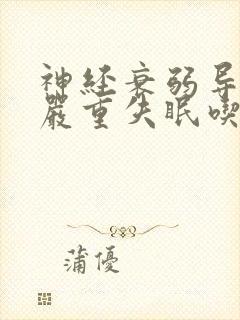 神经衰弱导
严重失眠喫
蒲優